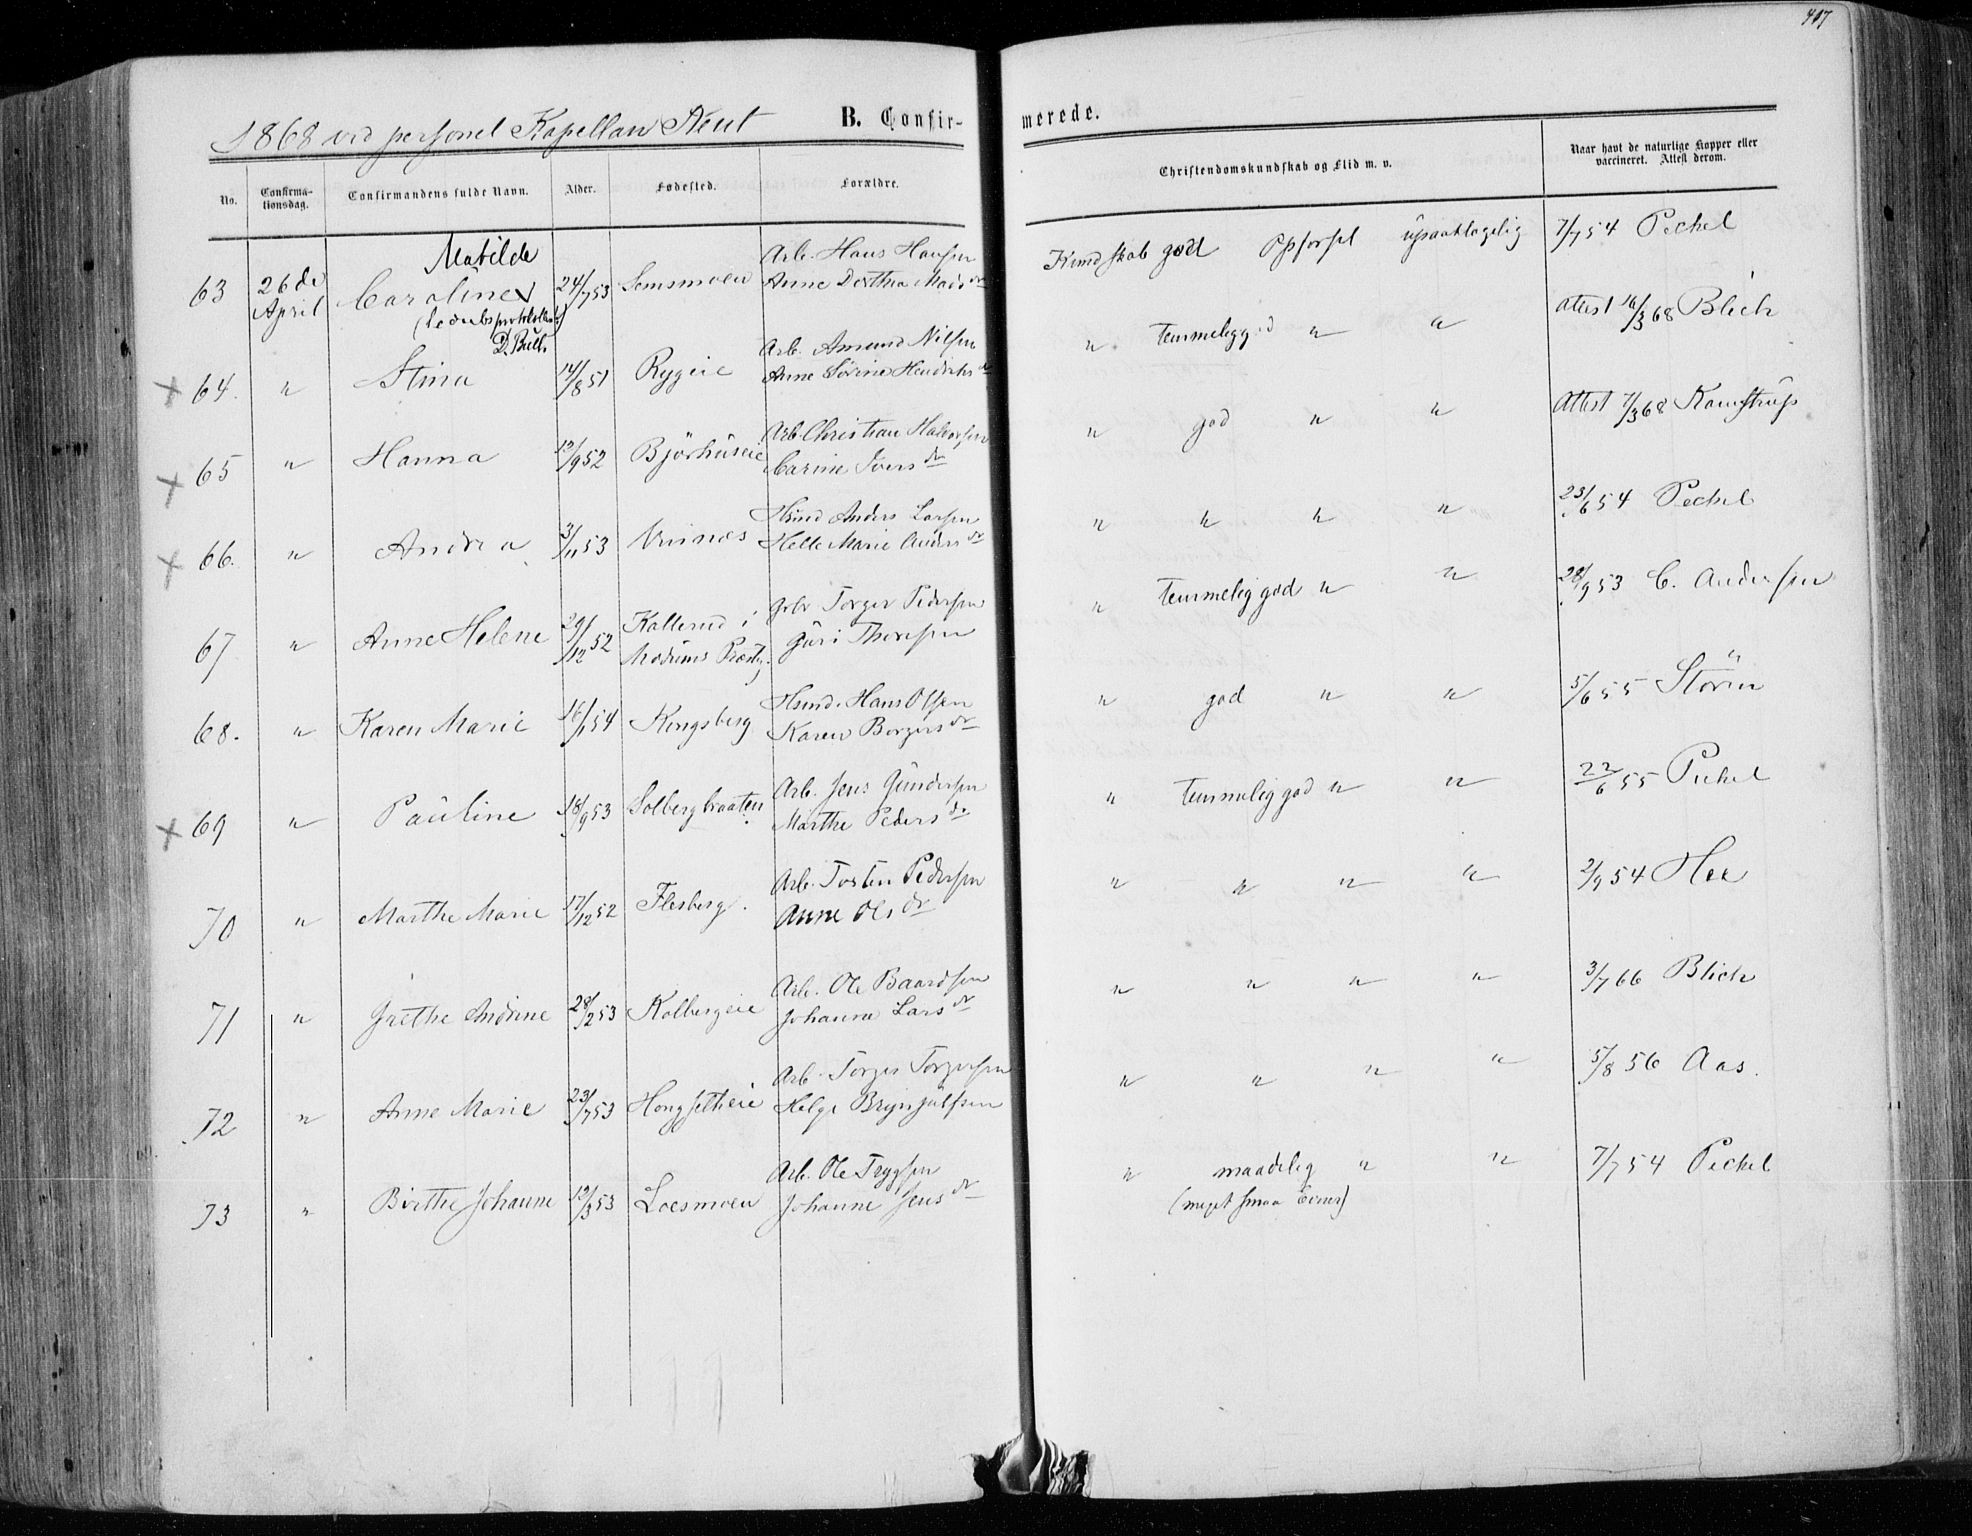 407
1868 ved personel Kapellan
B. Confirmerede.
No. Confirmationsdag. Confirmandens fulde Navn. Alder. Fødested. Forældre. Christendomskundskab og Flid m. v. Naar havt de naturlige Kopper eller vaccineret. Attest derom.
Matilde
63 26de April Caroline 24/7 53 Semsmoen Arb. Hans Hansen Kundskab god Opførsel upaaklagelig 7/7 54 Pechel
Anne Dorthea Mads dr
D. Bull
64. " Stina 14/8 51 Rygeie Arb. Amund Nilsen " temmelig god " " Attest 16/3 68 Blich
Anne Sørine Hendriks dr
65 " Hanna 12/9 52 Bjørhuseie Arb. Christian Halvorsen " god " " Attest 7/3 68 Kamstrup
Carine Ivers dr
66. " Andrea 3/11 53 Vrinæs Hsmd Anders Larsen " " " " 23/6 54 Pechel
Helle Marie Anders dr
67 " Anne Helene 29/12 52 Kallerud i Gbr Torger Pedersen " temmelig god " " 28/9 53 C. Andersen
Modums Præstg. Guri Thoresen
68. " Karen Marie 16/1 54 Kongsberg Hsmd. Hans Olsen " god " " 5/6 55 Støren
Karen Borgers dr
69 " Pauline 18/9 53 Solbergbraaten Arb. Jens Gundersen " temmelig god " " 22/6 55 Pechel
Marthe Peders dr
70 " Marthe Marie 17/12 52 Flesberg. Arb. Torsten Pedersen " " " " 2/9 54 Hee
Anne Ols dr
71 " Grethe Andrine 28/2 53 Kolbergeie Arb. Ole Baardsen " " " " 3/7 66 Blich
Johanne Lars dr
72 " Anne Marie 23/7 53 Hongseltheie Arb. Torger Torgersen " " " " 5/8 56 Aas.
Helge Brynjulfsen
73 " Birthe Johanne 12/3 53 Loesmoen Arb. Ole Trygsen " maadelig " " 7/7 54 Pechel
Johanne Jens dr (meget smaa Evner)